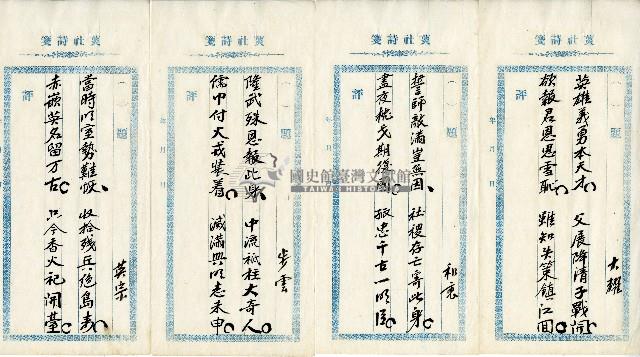 社詩箋
題
年 月 日
評
英雄義勇本天才 父 降清子戰開
欲報君恩思雪恥 雖知失策鎮江回
大耀
社詩箋
題
年 月 日
評
誓師敵滿豈無因 社稷存亡寄此身
晝夜枕戈期復國 孤忠千古一明臣
和衷
社詩箋
題
年 月 日
評
隆武殊恩報此 中流砥柱大奇人
儒巾付火戎裝着 滅滿興明志未申
步雲
社詩箋
題
年 月 日
評
當時明室勢難恢 收拾残兵絕島來
赤嵌英名留万古 只今香火祀開臺
英宗
國史館臺灣文獻館
TAIWAN HISTORICA